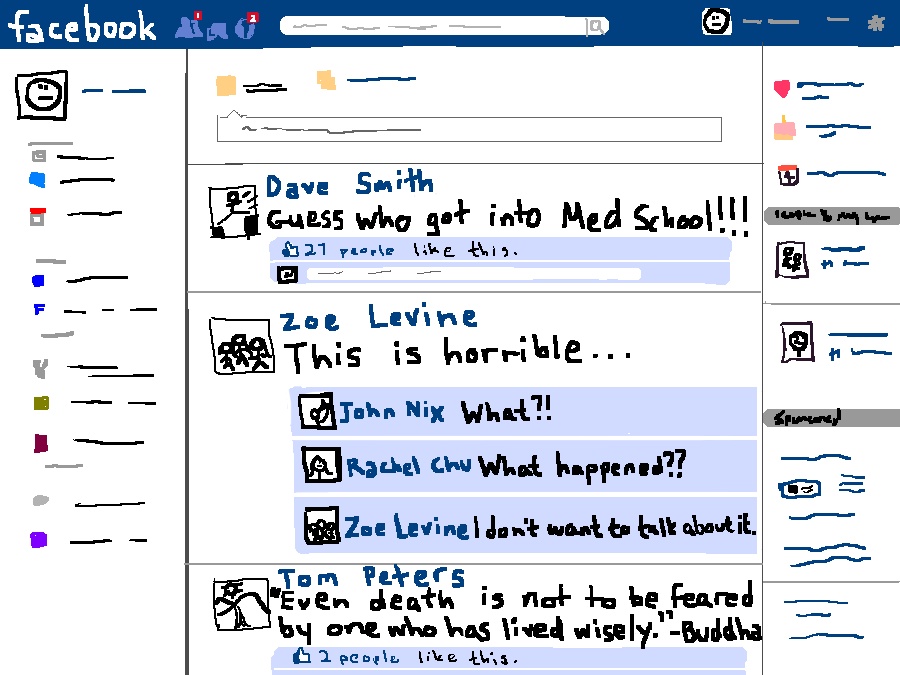 facebook
1
2
Dave Smith
Guess who got into Med School!!!
27 people like this.
Zoe Levine
This is horrible...
John Nix What?!
Rachel Chu What happened??
Zoe Levine I don't want to talk about it.
Sponsored
Tom Peters
"Even death is not to be feared
by one who has lived wisely."-Buddha
2 people like this.